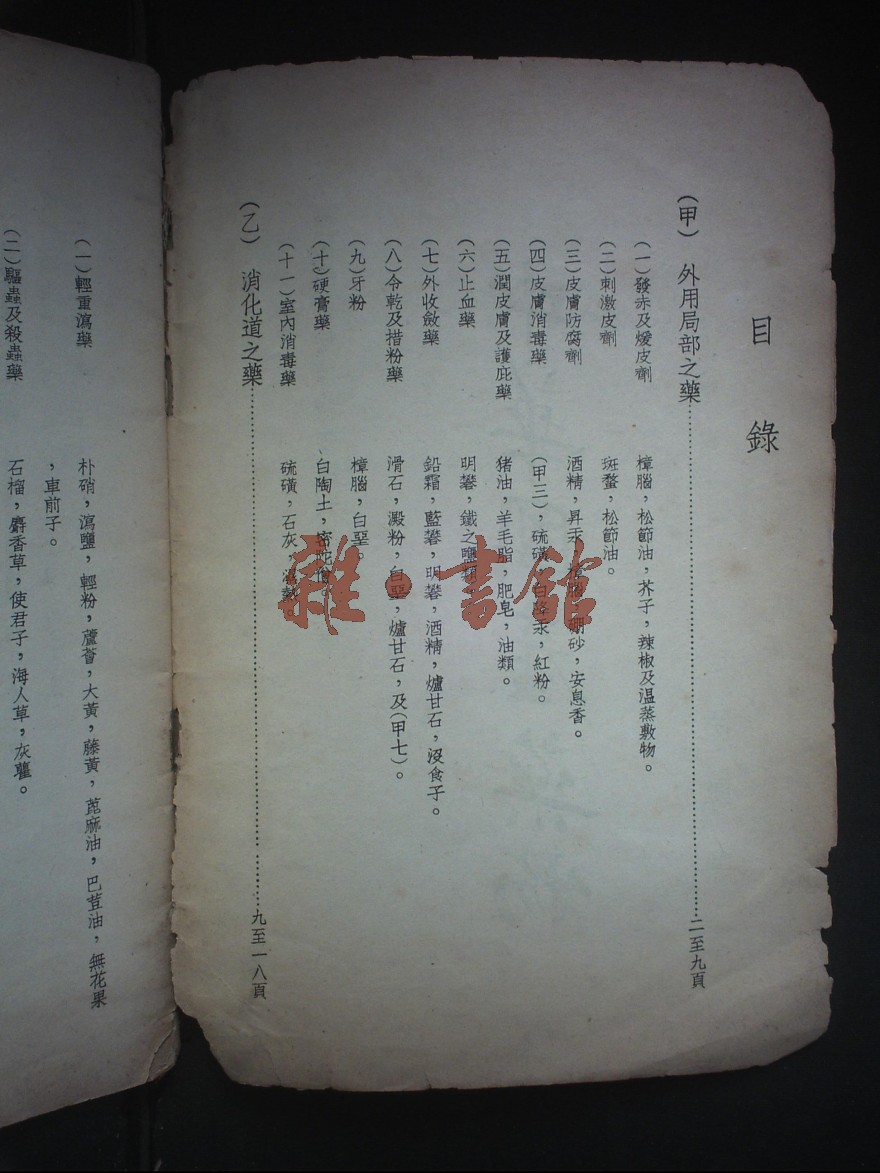 目錄
(甲) 外用局部之藥……二至九頁
(一)發赤及煖皮劑 樟腦，松節油，芥子，辣椒及溫蒸敷物。
(二)刺激皮劑 斑蝥，松節油。
(三)皮膚防腐劑 酒精，昇汞，硼砂，安息香。
(四)皮膚消毒藥 (甲三)，硫磺，白降汞，紅粉。
(五)潤皮膚及護庇藥 猪油，羊毛脂，肥皂，油類。
(六)止血藥 明礬，鐵之鹽類
(七)外收斂藥 鉛霜，藍礬，明礬，酒精，爐甘石，沒食子。
(八)令乾及措粉藥 滑石，澱粉，白堊，爐甘石，及(甲七)。
(九)牙粉 樟腦，白堊。
(十)硬膏藥 白陶土，密陀僧
(十一)室內消毒藥 硫磺，石灰，
(乙) 消化道之藥……九至一八頁
(一)輕重瀉藥 朴硝，瀉鹽，輕粉，蘆薈，大黃，藤黃，蓖麻油，巴荳油，無花果
，車前子。
(二)驅蟲及殺蟲藥 石榴，麝香草，使君子，海人草，灰藋。
雜·書館